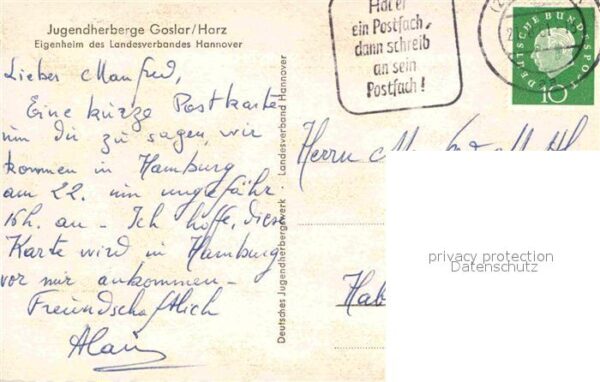 Jugendherberge Goslar/Harz
Eigenheim des Landesverbandes Hannover
Lieber Manfred,
Eine kurze Postkarte
um Dir zu sagen, wir
kommen in Hamburg
am 22. um ungefähr
16h. an – Ich hoffe, diese
Karte wird in Hamburg
vor mir ankommen –
Freundschaftlich
Alain
Deutsches Jugendherbergswerk Landesverband Hannover
Hat er
ein Postfach,
dann schreib
an sein
Postfach!
DEUTSCHE BUNDESPOST
10
Herrn M
Hab
privacy protection
Datenschutz